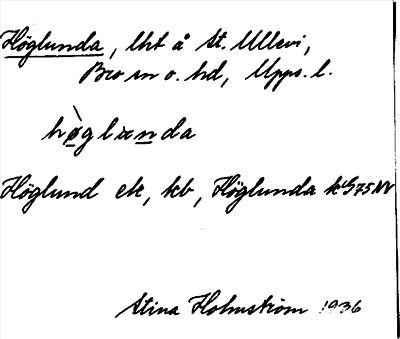 Höglunda, lht å St. Ullevi,
Bro sn o. hd, Upps. l.
hø̀glunda
Höglund ek, kb, Höglunda k G75NV
Stina Holmström 1936